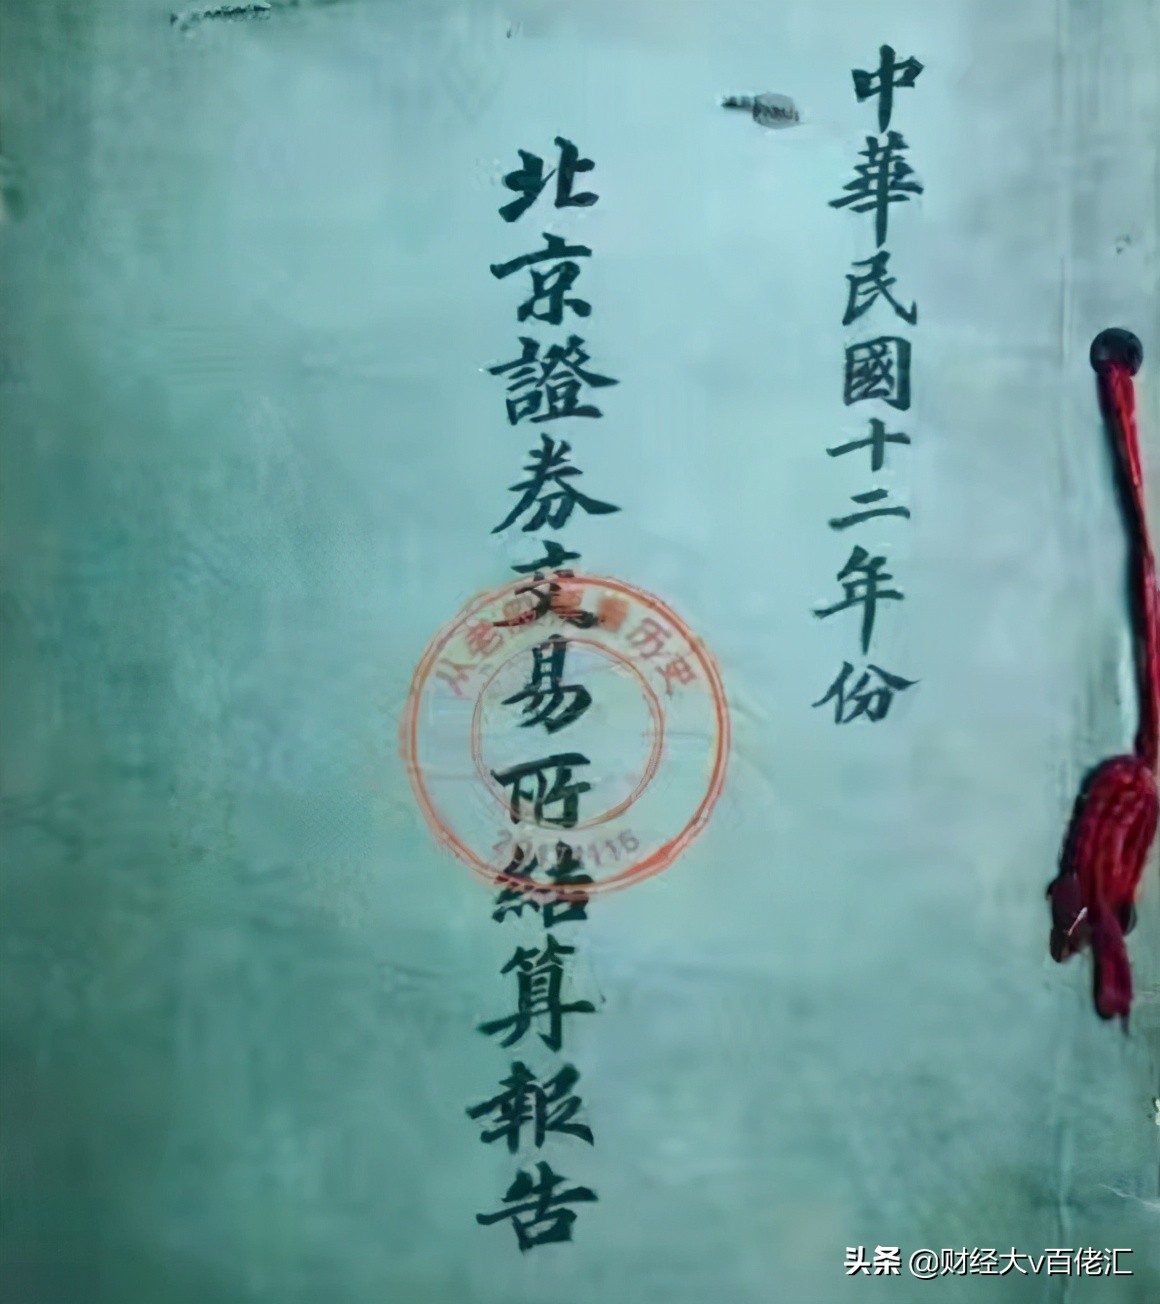 中華民國十二年份
北京證券交易所結算報告
从老
历史
头条 @财经大v百佬汇